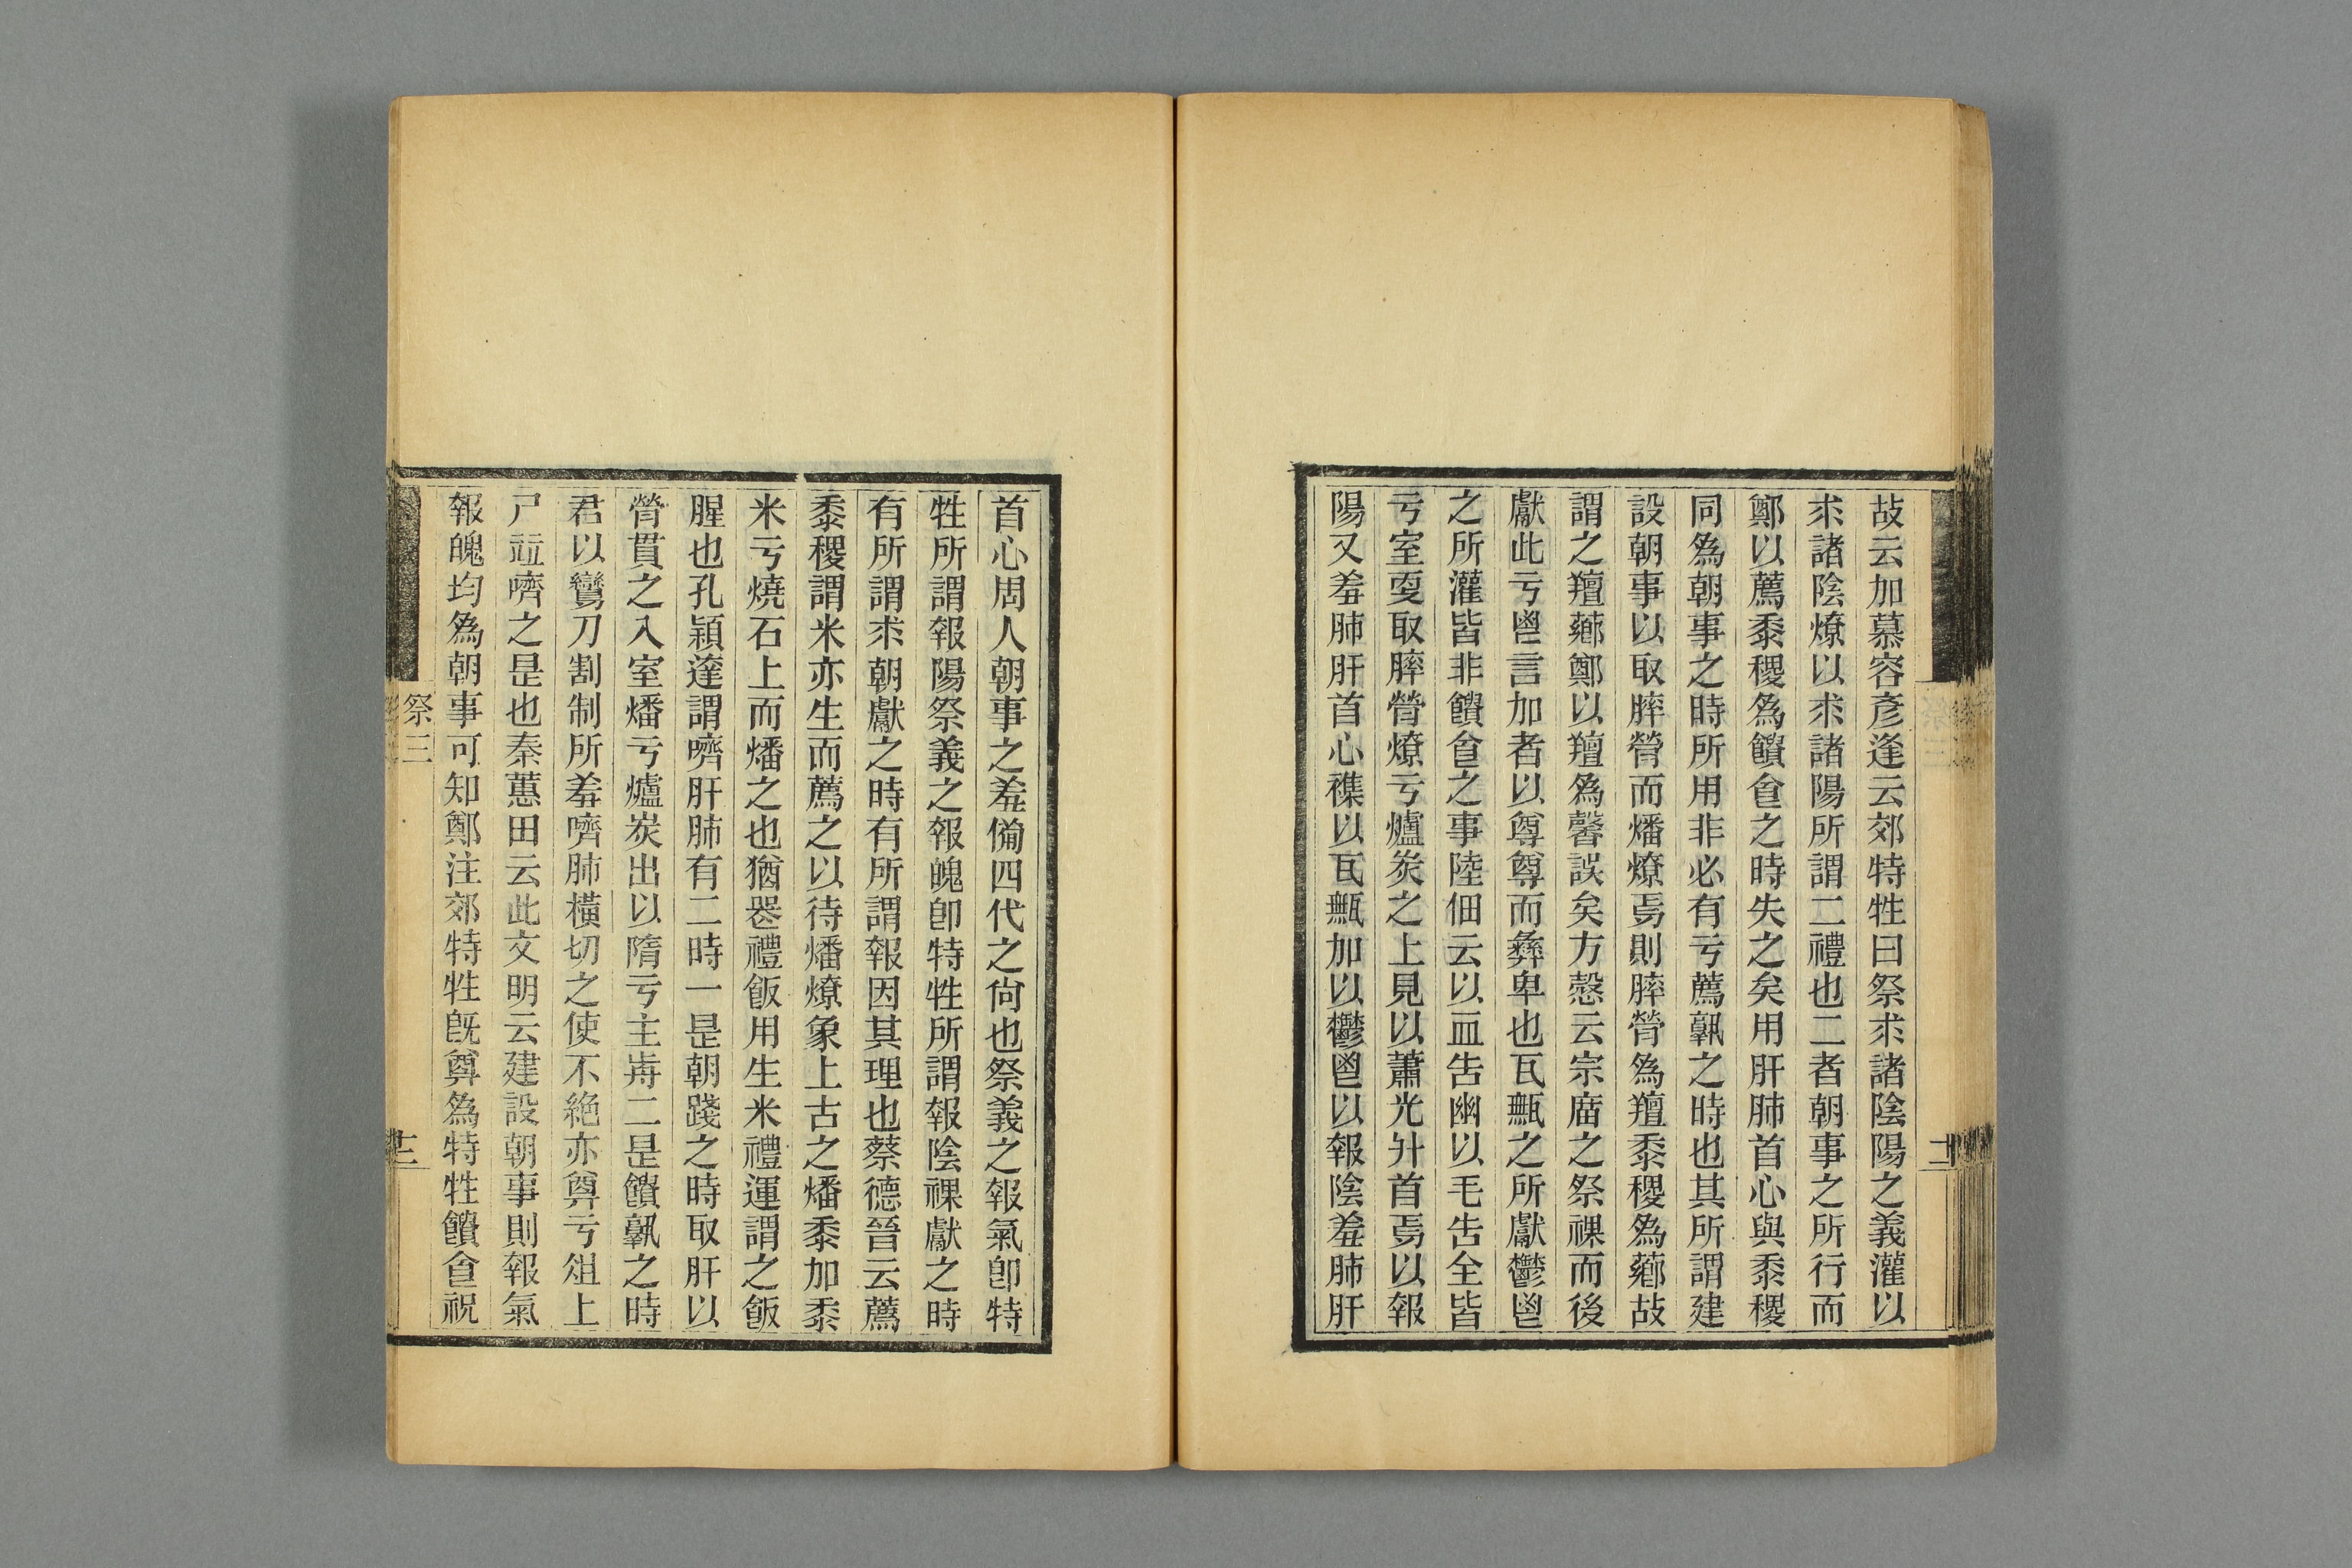 故云加慕容彥逢云郊特牲曰祭求諸陰陽之義灌以
求諸陰燎以求諸陽所謂二禮也二者朝事之所行而
鄭以薦黍稷為饋食之時失之矣用肝肺首心與黍稷
同為朝事之時所用非必有亏薦孰之時也其所謂建
設朝事以取膟膋而燔燎焉則膟膋為羶黍稷為薌故
謂之羶薌鄭以羶為馨誤矣方愨云宗庿之祭祼而後
獻此亏鬯言加者以尊尊而彝卑也瓦甒之所獻鬱鬯
之所灌皆非饋食之事陸佃云以血告幽以毛告全皆
亏室耎取膟膋燎亏爐炭之上見以蕭光升首焉以報
陽又羞肺肝首心襍以瓦甒加以鬱鬯以報陰羞肺肝
首心周人朝事之羞僃四代之尙也祭義之報氣卽特
牲所謂報陽祭義之報魄卽特牲所謂報陰祼獻之時
有所謂求朝獻之時有所謂報因其理也蔡德晉云薦
黍稷謂米亦生而薦之以待燔燎象上古之燔黍加黍
米亏燒石上而燔之也猶喪禮飯用生米禮運謂之飯
腥也孔穎達謂嚌肝肺有二時一是朝踐之時取肝以
膋貫之入室燔亏爐炭出以隋亏主歬二是饋孰之時
君以鸞刀割制所羞嚌肺橫切之使不絶亦奠亏俎上
尸竝嚌之是也秦蕙田云此文明云建設朝事則報氣
報魄均為朝事可知鄭注郊特牲旣奠為特牲饋食祝
祭三
十二